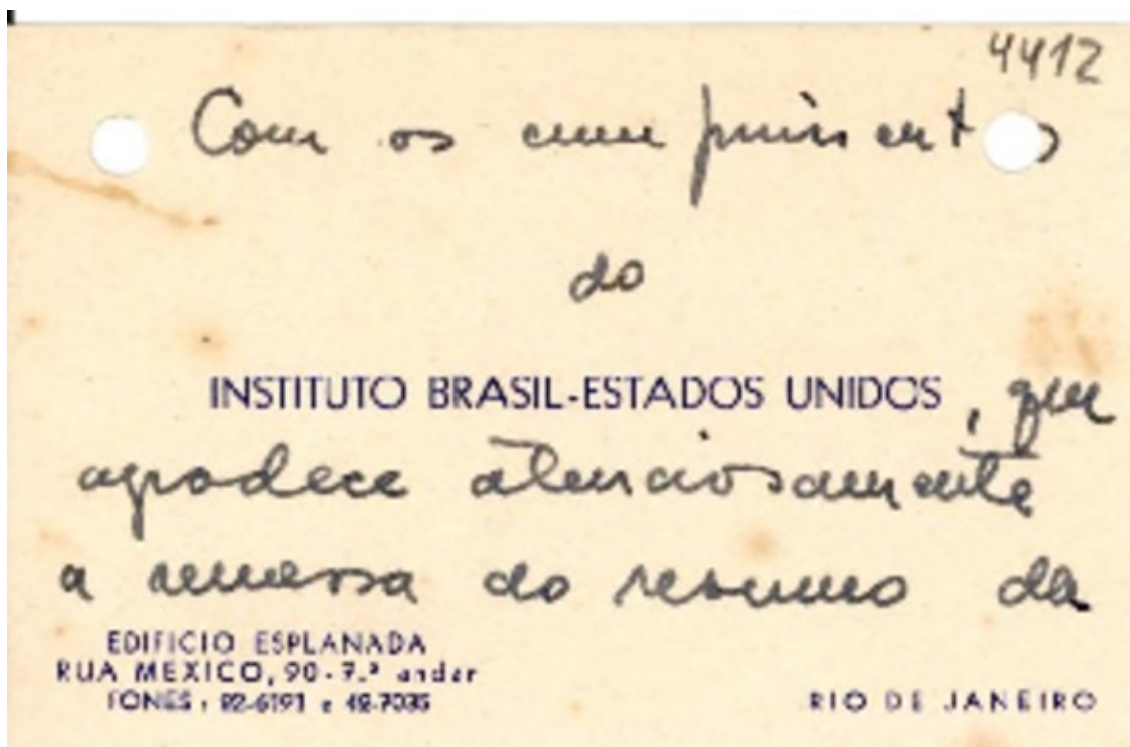 4412
Com os cumprimentos
do
INSTITUTO BRASIL-ESTADOS UNIDOS, que
agradece atenciosamente
a remessa do resumo da
EDIFICIO ESPLANADA
RUA MEXICO, 90-7.º andar
FONES: 22-6191 e 42-7035
RIO DE JANEIRO